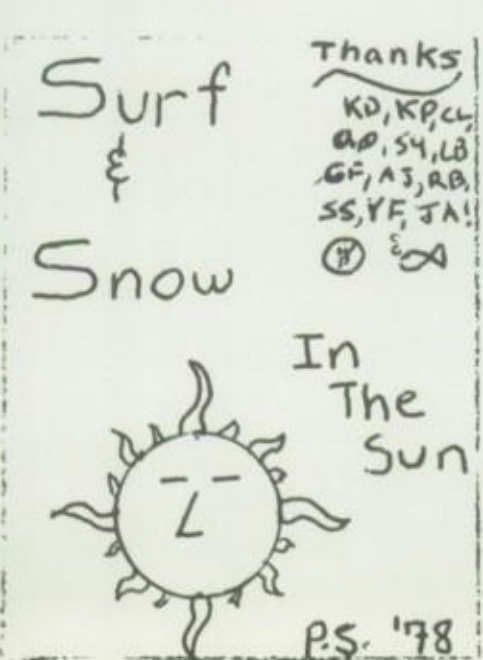 Surf
&
Snow
Thanks
KD, KP, CL,
SY, LB
GF, AJ, RB,
SS, YF, JA!
&
In
The
Sun
P.S. '78